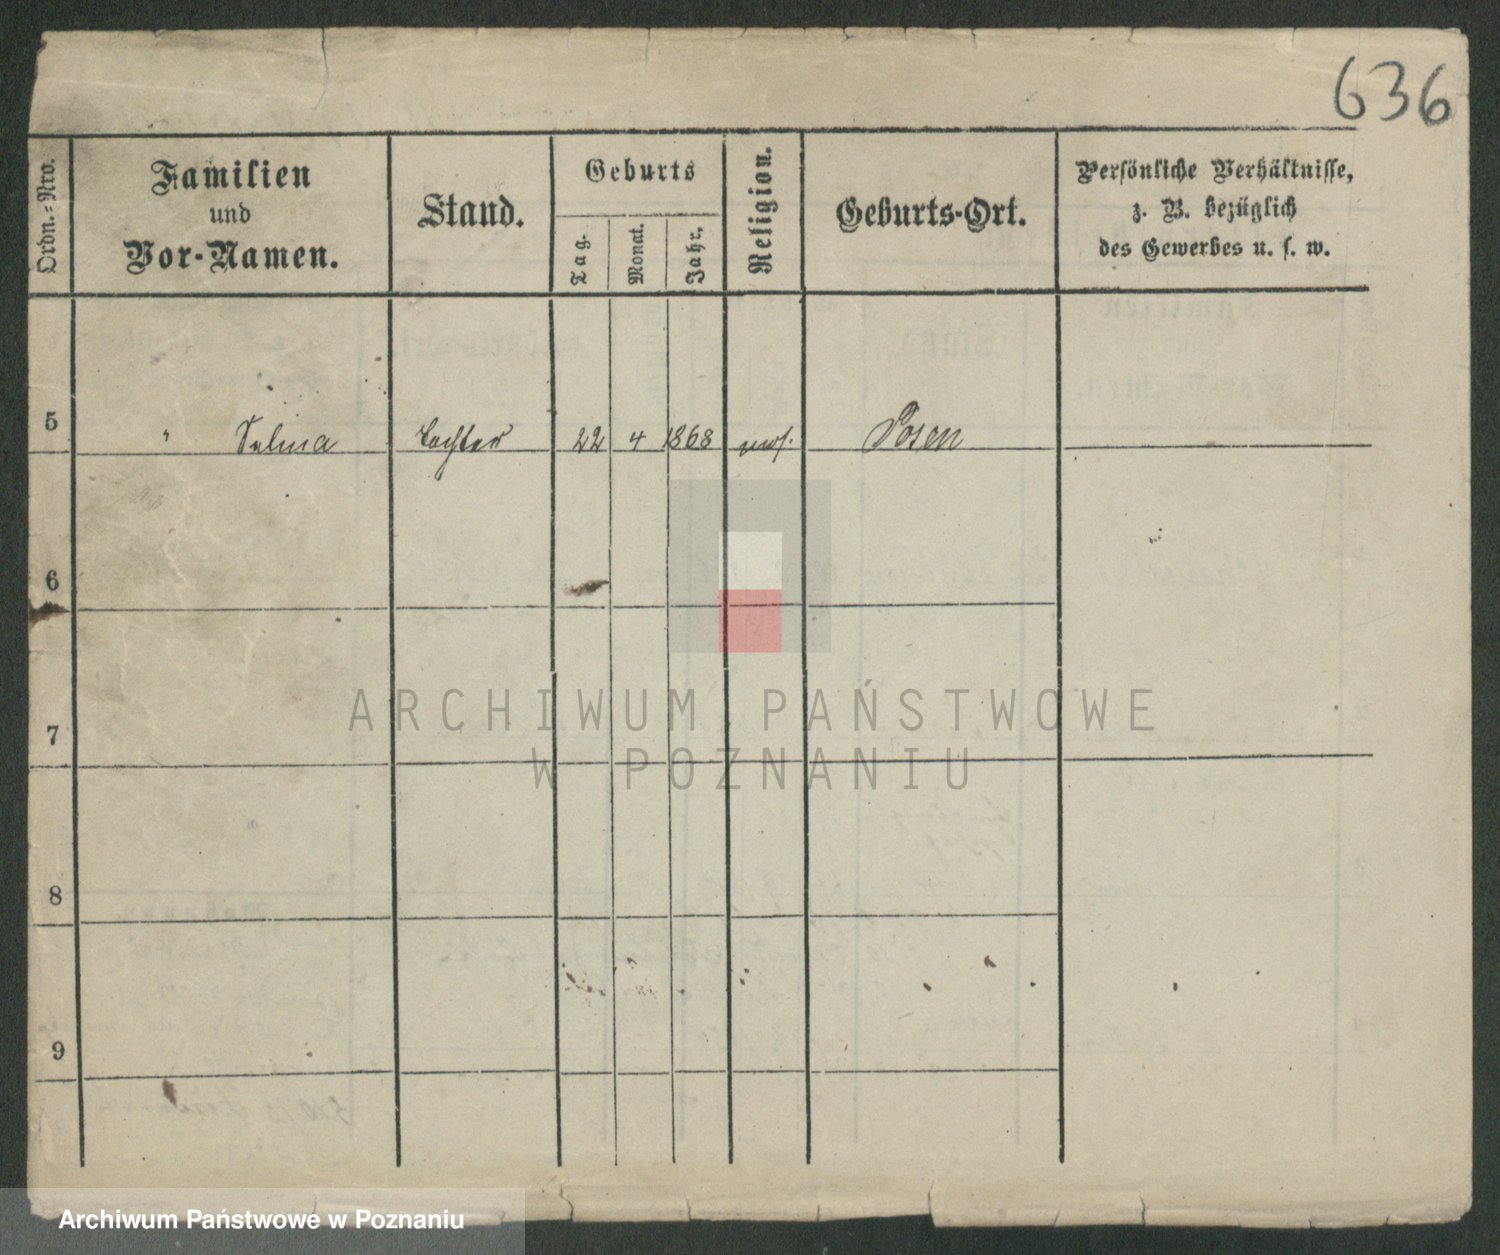 636
Ordn.-Nro.
Familien
und
Vor-Namen.
Stand.
Geburts
Tag.
Monat.
Jahr.
Religion.
Geburts-Ort.
Persönliche Verhältnisse,
z. B. bezüglich
des Gewerbes u. s. w.
5 " Selma Tochter 22 4 1868 mos. Posen
6
7
8
9
ARCHIWUM PAŃSTWOWE
W POZNANIU
Archiwum Państwowe w Poznaniu